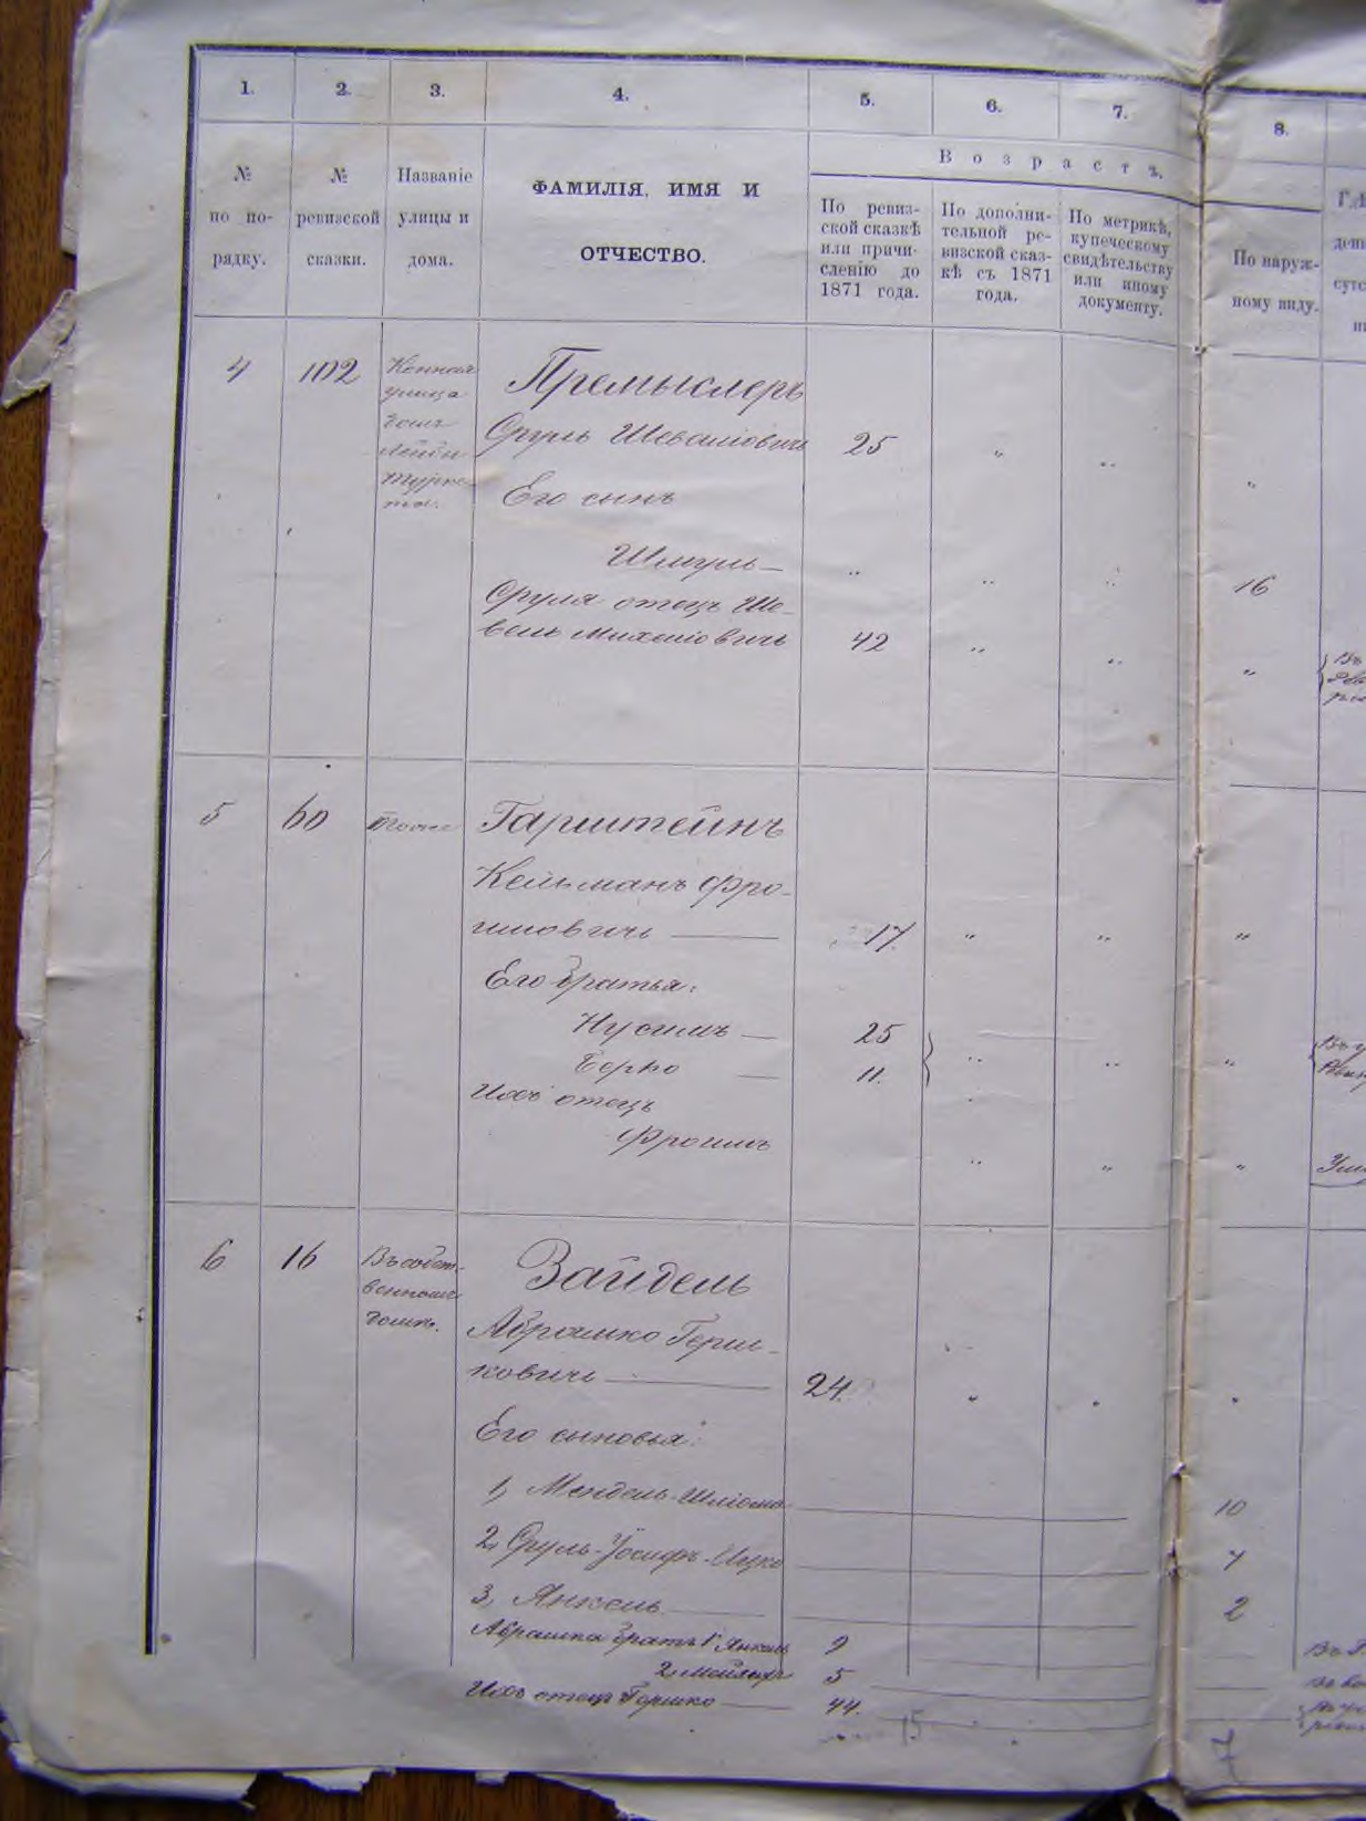 1. 2. 3. 4. 5. 6. 7. 8.
Возрастъ.
№ по по- рядку.
№ ревизской сказки.
Названіе улицы и дома.
ФАМИЛІЯ, ИМЯ И
ОТЧЕСТВО.
По ревиз-
ской сказкѣ
или причи-
сленію до
1871 года.
По дополни-
тельной ре-
визской сказ-
кѣ съ 1871
года.
По метрикѣ,
купеческому
свидѣтельству
или иному
документу.
По наруж-
ному виду.
4 102
Конная
улица
домъ
Премыслеръ
Сруль Шеваліовичъ 25 " " "
Его сынъ
Шмуль — " " " 16
Сруля отецъ Ше-
вель Михеліовичъ 42 " " "
Въ
5 60
Гарштейнъ
Кельманъ Фро-
имовичъ — 17. " " "
Его братья:
Нусимъ — 25
Берко — 11. " " "
Ихъ отецъ
Фроимъ " " "
6 16
Въ собст-
венномъ
домѣ.
Зайдель
Абрамко Герш-
ковичъ — 24. " " "
Его сыновья:
1, Мендель-Шліома 10
2, Сруль-Іосифъ-Ицко 7
3, Янкель — 2
Абрамка братъ 1, Янкель 9
2, 5
Ихъ отецъ Гершко — 44.
15
7